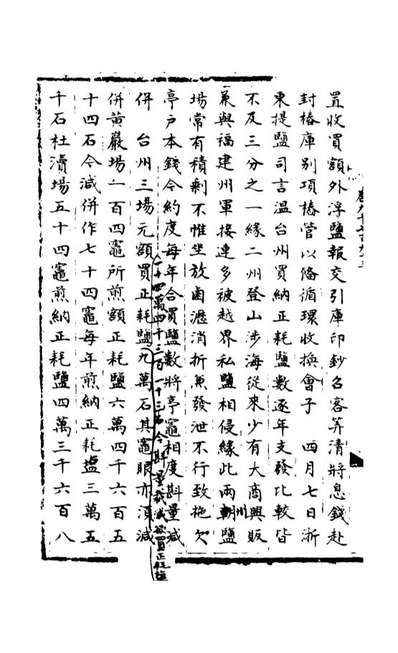 置收買額外浮鹽報交引庫印鈔召客筭清將息錢赴
封樁庫别項樁管以備循環收換會子　四月七日浙
東提鹽司言温台州買納正耗鹽數逐年支發比較皆
不及三分之一緣二州登山涉海從來少有大商興販
兼與福建州軍接連多被越界私鹽相侵緣此兩州鹽
場常有積剩不惟坐放鹵瀝消折兼發泄不行致拖欠
亭户本錢今約度每年合買鹽數將亭竈相度斟量減
併　台州三場元額買正耗鹽九萬石其竈眼亦須減
併黄巖場一百四竈所額正耗鹽六萬四千六百五
十四石今減併作七十四竈每年煎納正耗鹽三萬五
千石杜瀆場五十四竈煎納正耗鹽四萬三千六百八